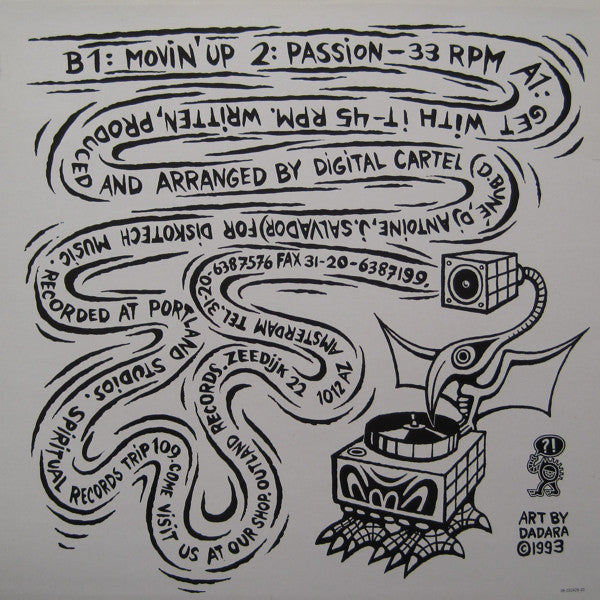 B1: MOVIN' UP 2: PASSION – 33 RPM A1: GET
WITH IT – 45 RPM. WRITTEN, PRODUCED
AND ARRANGED BY DIGITAL CARTEL (D. BUNE, DJ
ANTOINE, J. SALVADOR) FOR DISKOTECH MUSIC.
RECORDED AT PORTLAND STUDIOS.
SPIRITUAL RECORDS TRIP 109. COME VISIT US AT OUR SHOP. OUTLAND RECORDS. ZEEDIJK 22
1012 AZ AMSTERDAM TEL. 31-20-6387576 FAX 31-20-6387199.
?!
ART BY
DADARA
©1993